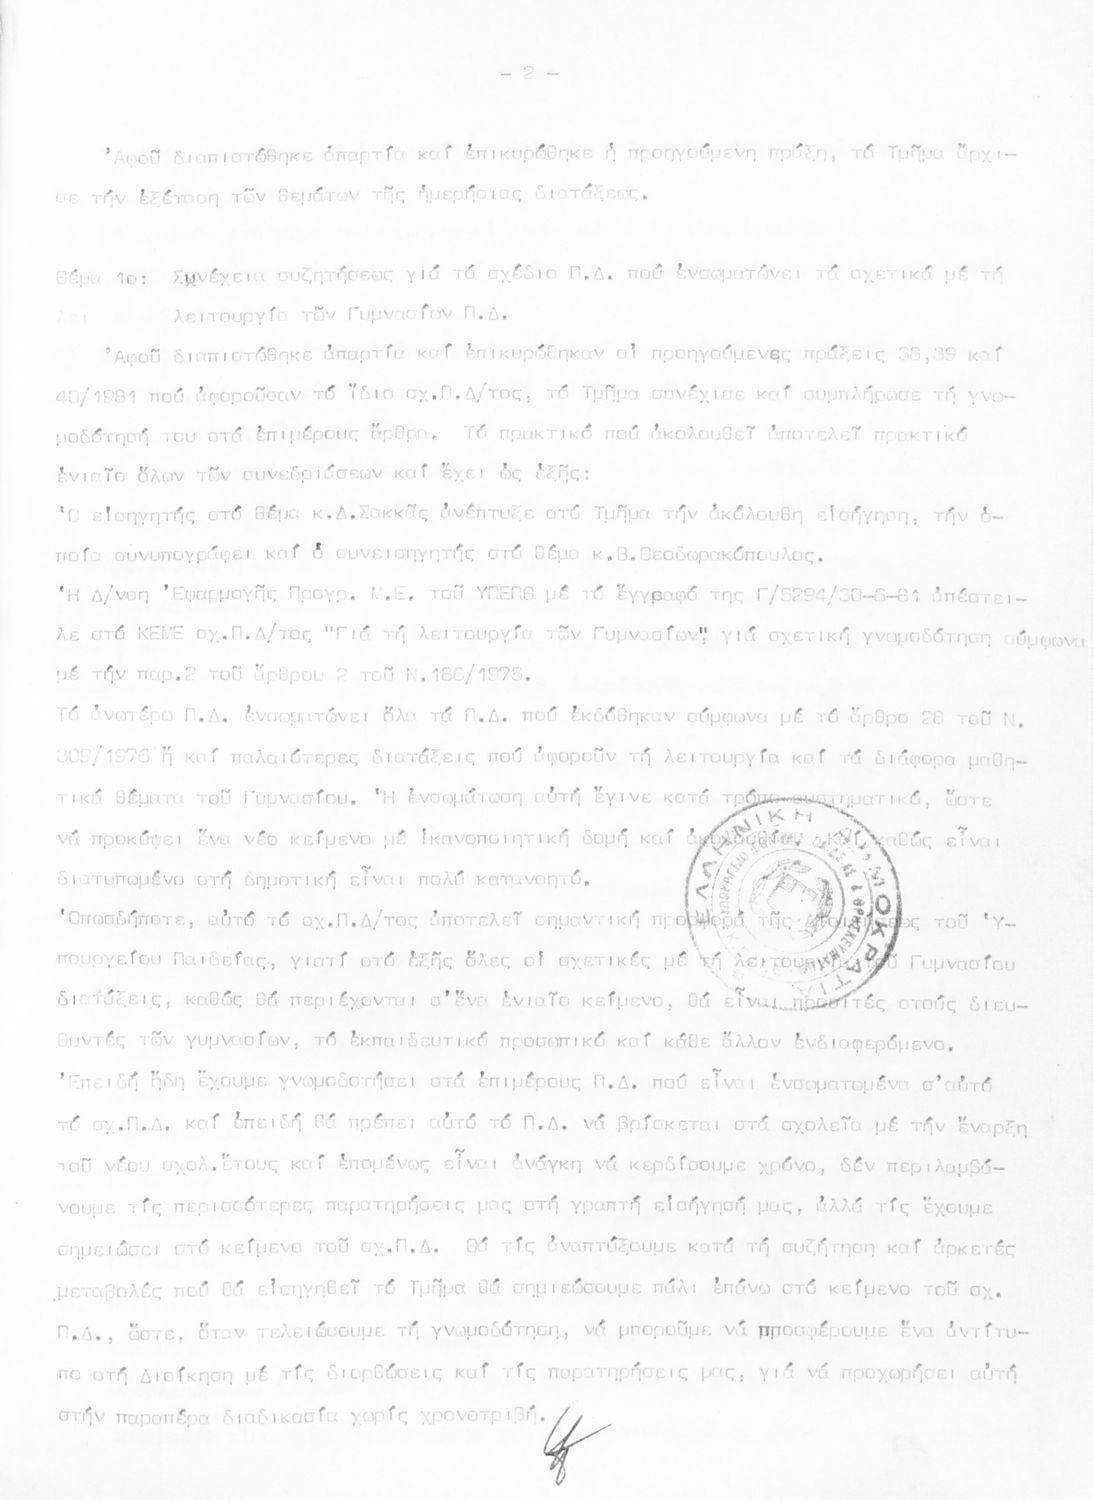 - 2 -
Ἀφοῦ διαπιστώθηκε ἀπαρτία καί ἐπικυρώθηκε ἡ προηγούμενη πράξη, τό Τμῆμα ἄρχι-
σε τήν ἐξέταση τῶν θεμάτων τῆς ἡμερήσιας διατάξεως.
Θέμα 1ο: Συνέχεια συζητήσεως γιά τό σχέδιο Π.Δ. πού ἐνσωματώνει τά σχετικά μέ τή
λειτουργία τῶν Γυμνασίων Π.Δ.
Ἀφοῦ διαπιστώθηκε ἀπαρτία καί ἐπικυρώθηκαν οἱ προηγούμενες πράξεις 38,39 καί
40/1981 πού ἀφοροῦσαν τό ἴδιο σχ.Π.Δ/τος, τό Τμῆμα συνέχισε καί συμπλήρωσε τή γνω-
μοδότησή του στά ἐπιμέρους ἄρθρα. Τό πρακτικό πού ἀκολουθεῖ ἀποτελεῖ πρακτικό
ἑνιαῖο ὅλων τῶν συνεδριάσεων καί ἔχει ὡς ἑξῆς:
Ὁ εἰσηγητής στό θέμα κ.Δ.Σακκᾶς ἀνέπτυξε στό Τμῆμα τήν ἀκόλουθη εἰσήγηση, τήν ὁ-
ποία συνυπογράφει καί ὁ συνεισηγητής στό θέμα κ.Β.Θεοδωρακόπουλος.
Ἡ Δ/νση Ἐφαρμογῆς Προγρ. Μ.Ε. τοῦ ΥΠΕΠΘ μέ τό ἔγγραφό της Γ/5294/30-6-81 ἀπέστει-
λε στό ΚΕΜΕ σχ.Π.Δ/τος "Γιά τή λειτουργία τῶν Γυμνασίων", γιά σχετική γνωμοδότηση σύμφωνα
μέ τήν παρ.2 τοῦ ἄρθρου 2 τοῦ Ν.186/1975.
Τό ἀνωτέρω Π.Δ. ἐνσωματώνει ὅλα τά Π.Δ. πού ἐκδόθηκαν σύμφωνα μέ τό ἄρθρο 28 τοῦ Ν.
309/1976 ἤ καί παλαιότερες διατάξεις πού ἀφοροῦν τή λειτουργία καί τά διάφορα μαθη-
τικά θέματα τοῦ Γυμνασίου. Ἡ ἐνσωμάτωση αὐτή ἔγινε κατά τρόπο συστηματικό, ὥστε
νά προκύψει ἕνα νέο κείμενο μέ ἱκανοποιητική δομή καί ἀκολουθία. Καί καθώς εἶναι
διατυπωμένο στή δημοτική εἶναι πολύ κατανοητό.
Ὁπωσδήποτε, αὐτό τό σχ.Π.Δ/τος ἀποτελεῖ σημαντική προσφορά τῆς Διοικήσεως τοῦ Ὑ-
πουργείου Παιδείας, γιατί στό ἑξῆς ὅλες οἱ σχετικές μέ τή λειτουργία τοῦ Γυμνασίου
διατάξεις, καθώς θά περιέχονται σ'ἕνα ἑνιαῖο κείμενο, θά εἶναι προσιτές στούς διευ-
θυντές τῶν γυμνασίων, τό ἐκπαιδευτικό προσωπικό καί κάθε ἄλλον ἐνδιαφερόμενο.
Ἐπειδή ἤδη ἔχουμε γνωμοδοτήσει στά ἐπιμέρους Π.Δ. πού εἶναι ἐνσωματωμένα σ'αὐτό
τό σχ.Π.Δ. καί ἐπειδή θά πρέπει αὐτό τό Π.Δ. νά βρίσκεται στά σχολεῖα μέ τήν ἔναρξη
τοῦ νέου σχολ.ἔτους καί ἑπομένως εἶναι ἀνάγκη νά κερδίσουμε χρόνο, δέν περιλαμβά-
νουμε τίς περισσότερες παρατηρήσεις μας στή γραπτή εἰσήγησή μας, ἀλλά τίς ἔχουμε
σημειώσει στό κείμενο τοῦ σχ.Π.Δ. Θά τίς ἀναπτύξουμε κατά τή συζήτηση καί ἀρκετές
μεταβολές πού θά εἰσηγηθεῖ τό Τμῆμα θά σημιεώσουμε πάλι ἐπάνω στό κείμενο τοῦ σχ.
Π.Δ., ὥστε, ὅταν τελειώσουμε τή γνωμοδότηση, νά μποροῦμε νά προσφέρουμε ἕνα ἀντίτυ-
πο στή Διοίκηση μέ τίς διορθώσεις καί τίς παρατηρήσεις μας, γιά νά προχωρήσει αὐτή
στήν παραπέρα διαδικασία χωρίς χρονοτριβή.
ΕΛΛΗΝΙΚΗ ΔΗΜΟΚΡΑΤΙΑ